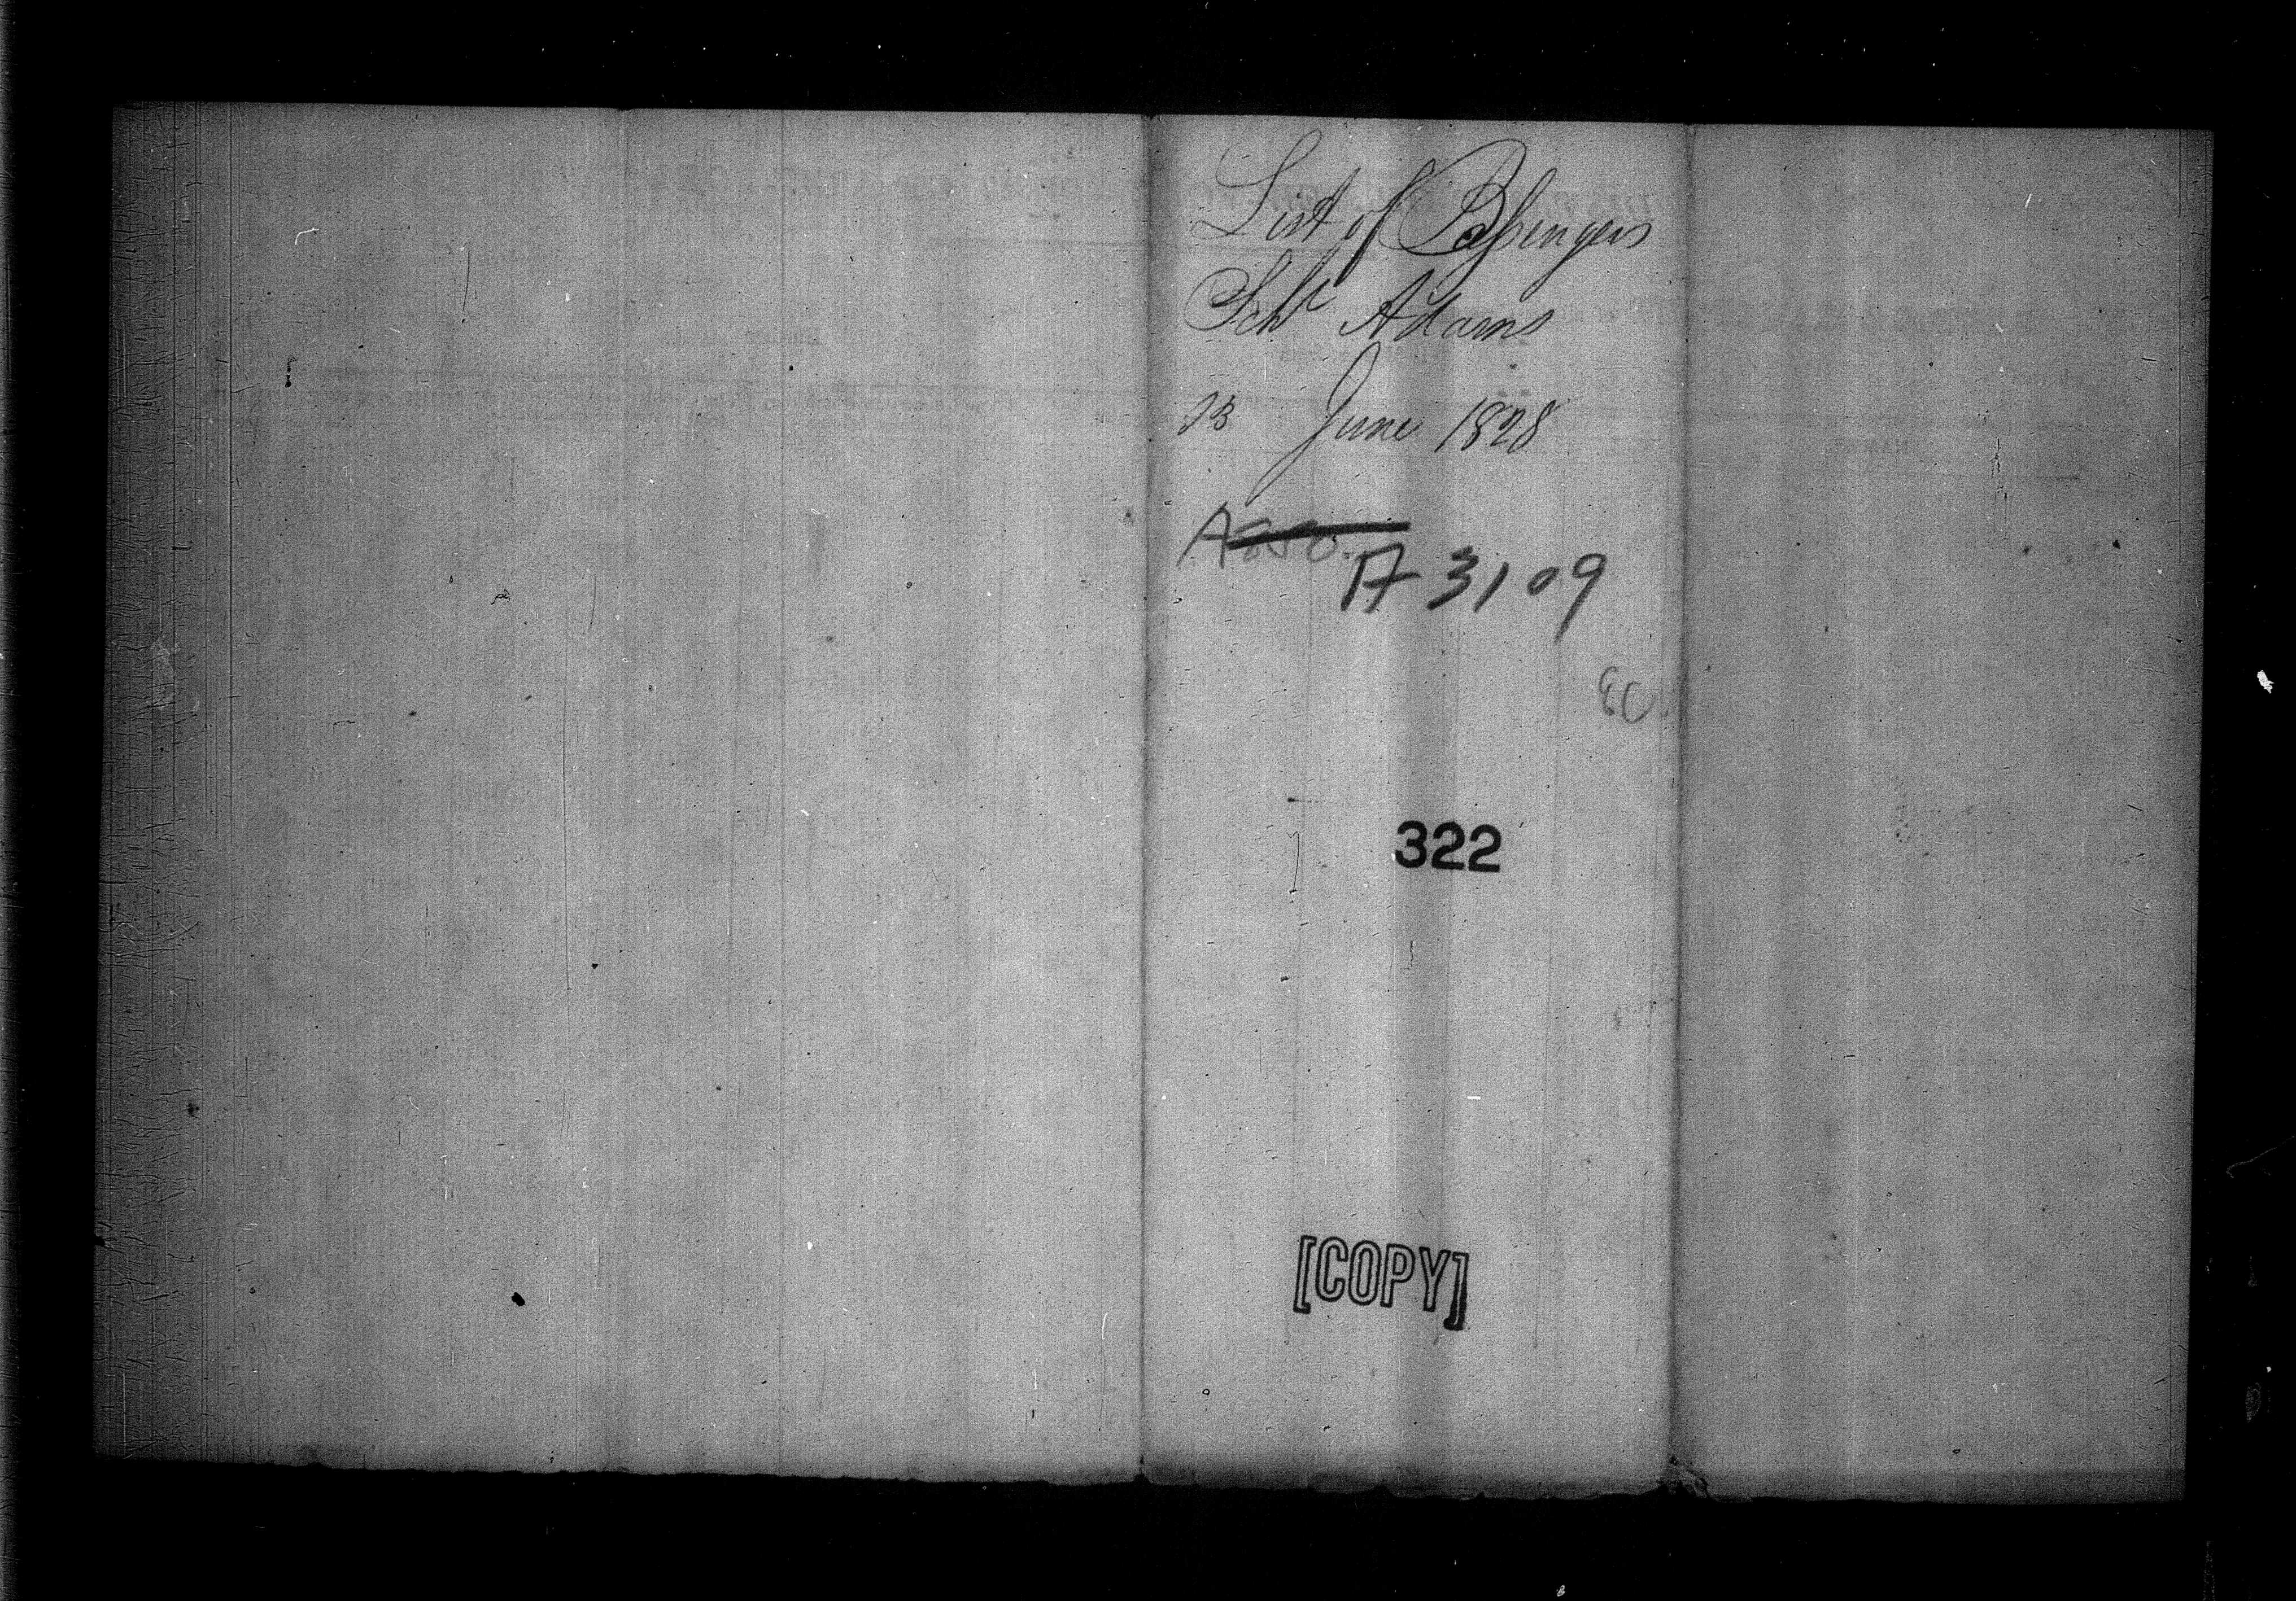 List of Passengers
Schr Adams
13 June 1828
A 3109
322
[COPY]